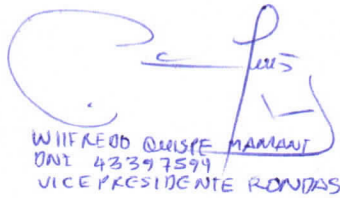 WIlFREDO QUISPE MAMANI
DNI 43397599
VICEPRESIDENTE RONDAS